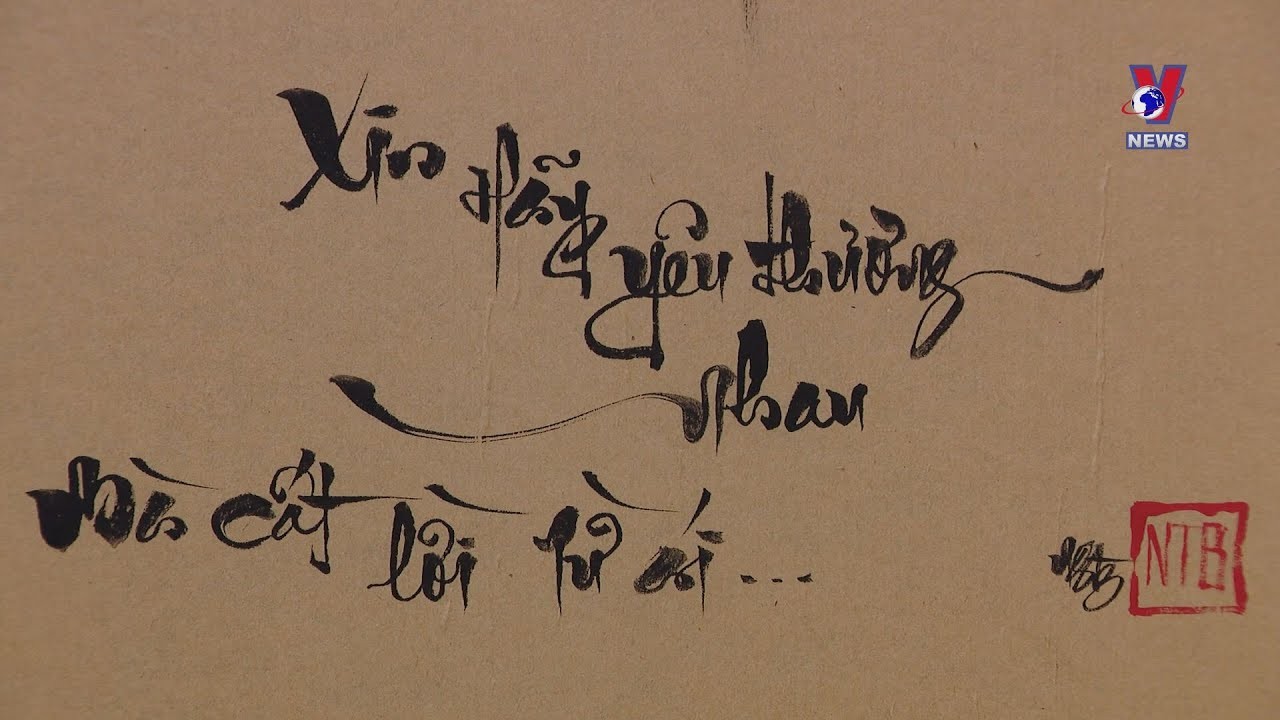 Xin hãy yêu thương
nhau
mà cất lời từ ái...
NTB
V
NEWS